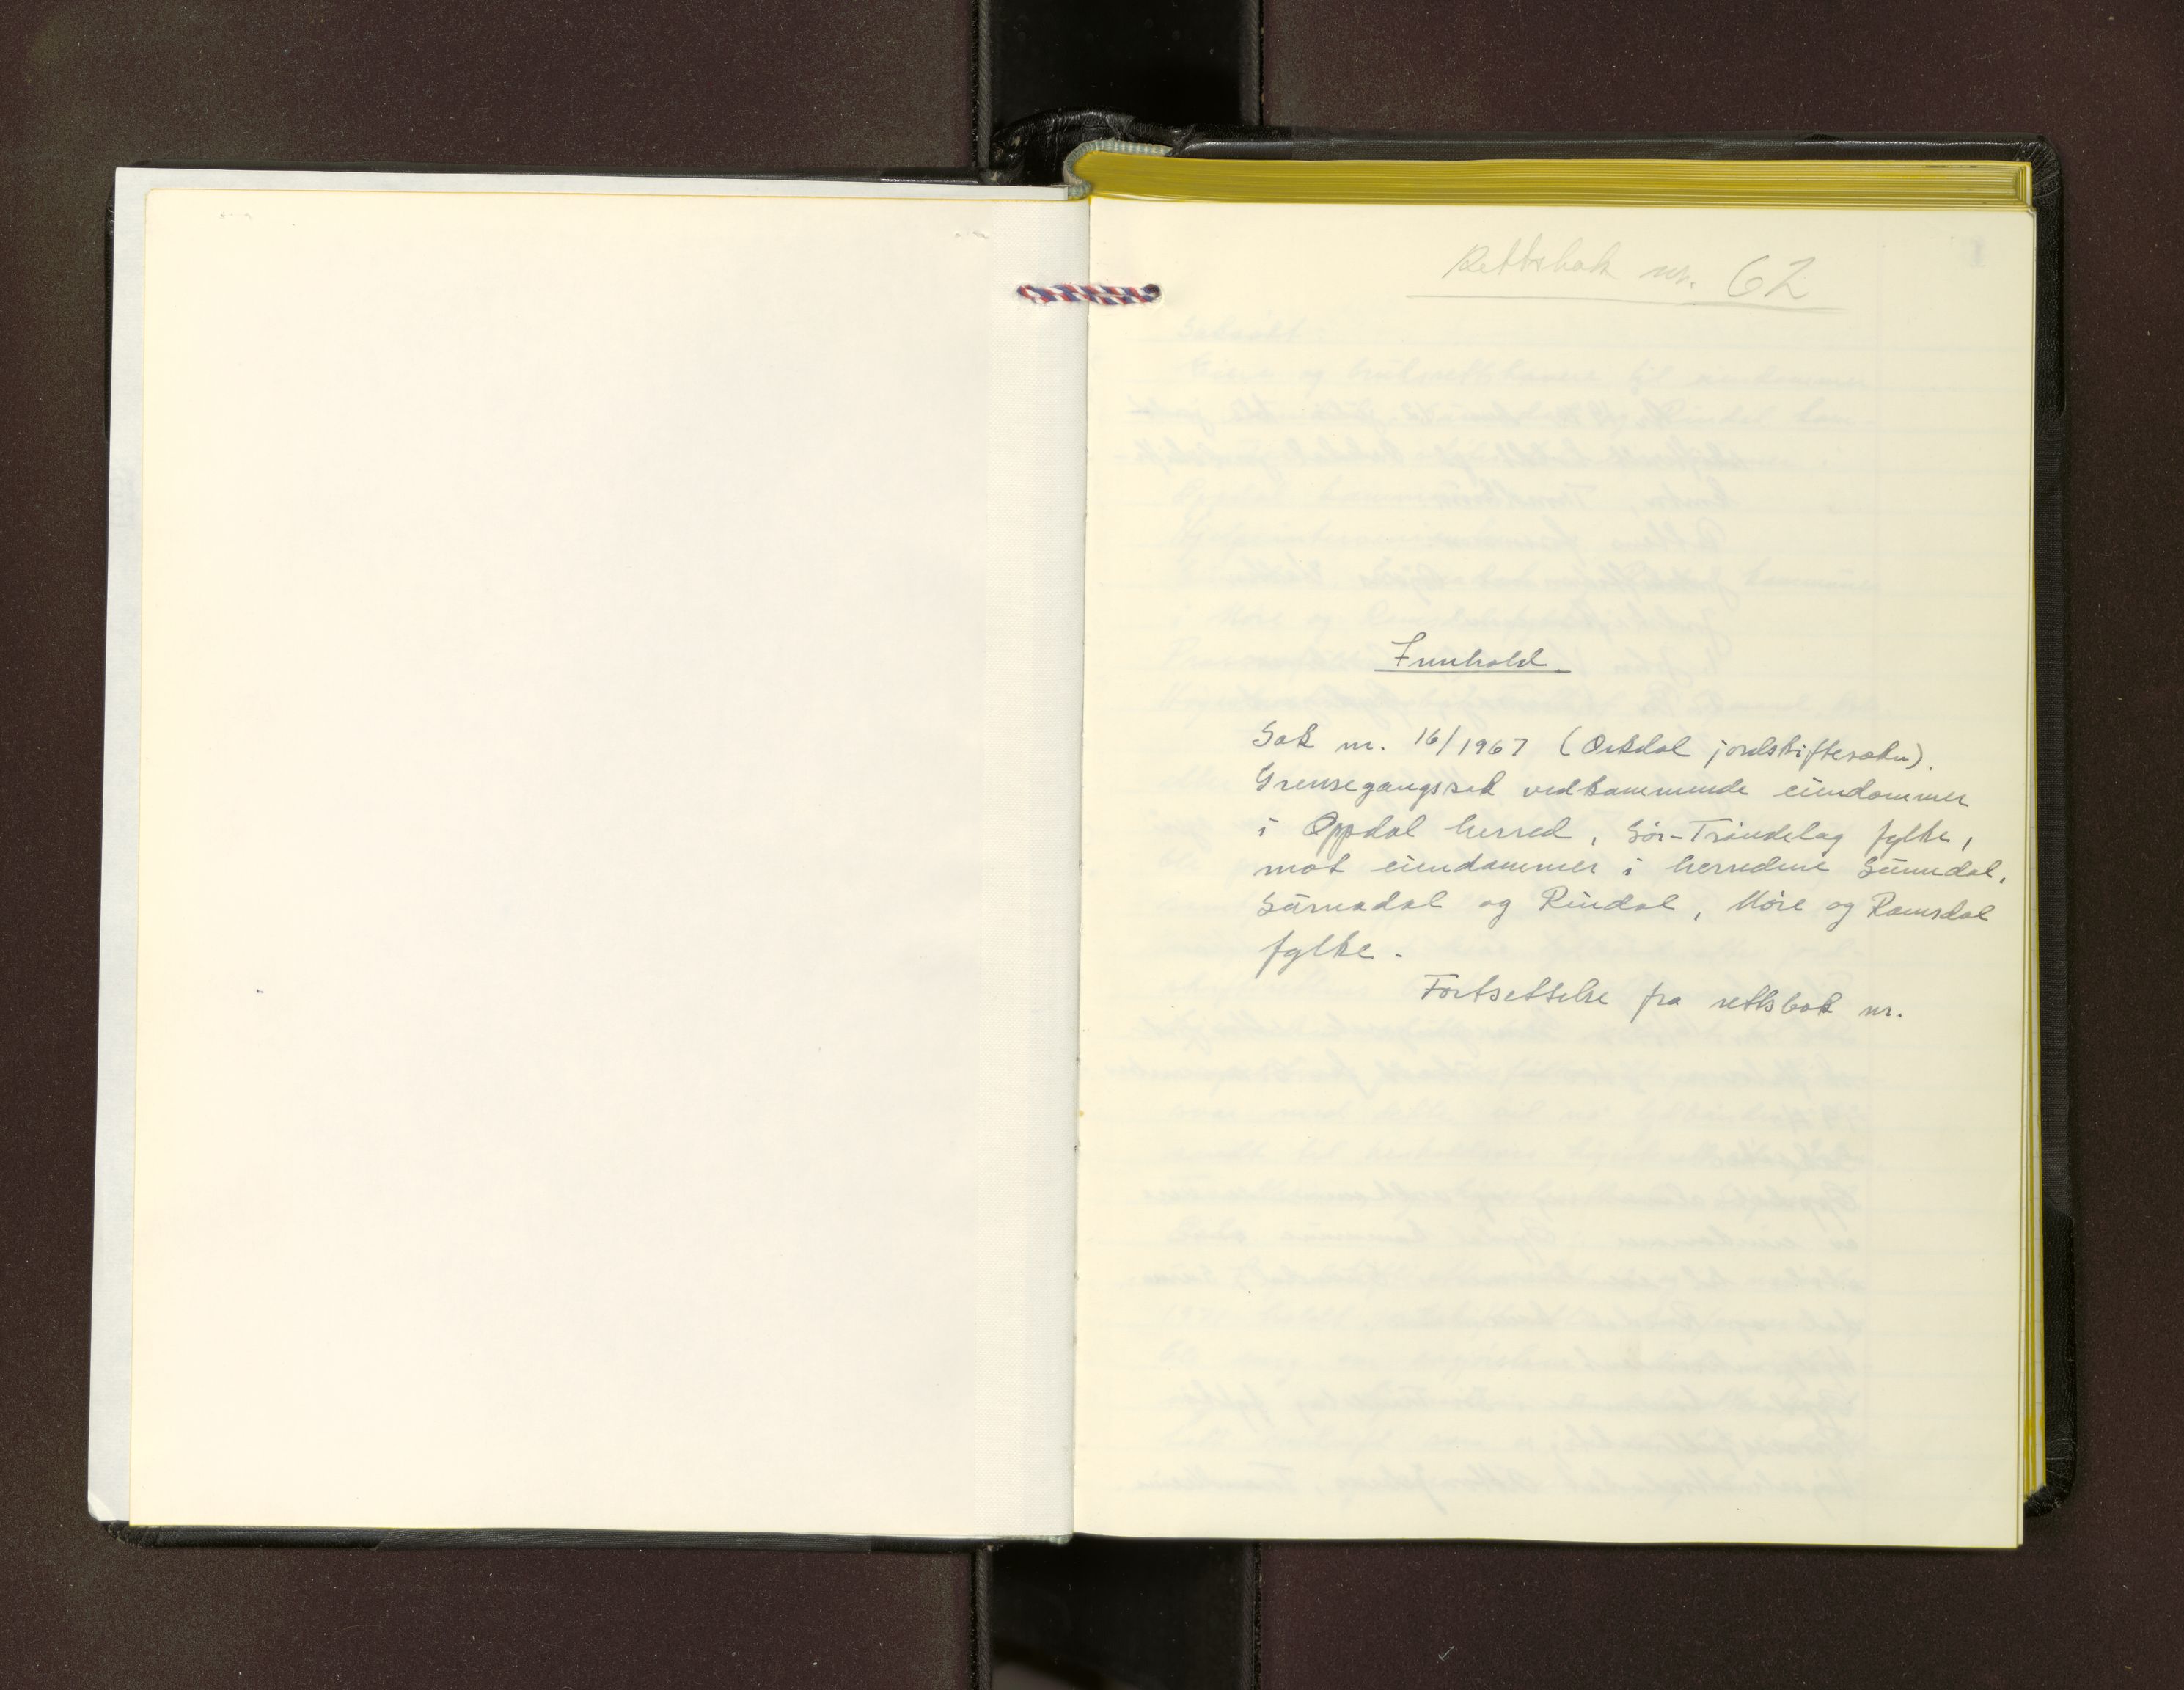 Rettsbok nr. 62
Innhold.
Sak nr. 16/1967 (Orkdal jordskiftesokn).
Grensegangssak vedkommende eiendommer
i Oppdal herred, Sør-Trøndelag fylke,
mot eiendommer i herredene Sunndal,
Surnadal og Rindal, Møre og Romsdal
fylke.
Fortsettelse fra rettsbok nr.